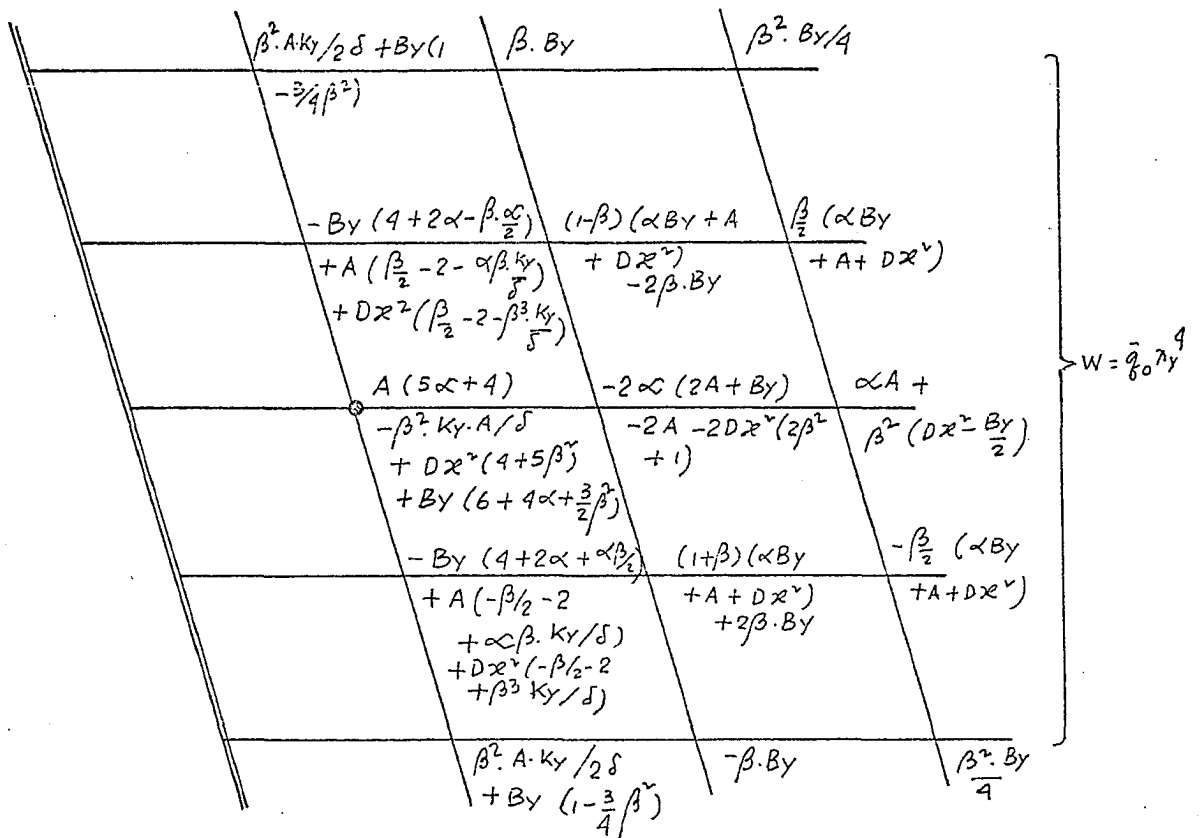 β². A.Ky/2δ + By(1
- 3/4 β²)
β. By
β². By/4
- By (4 + 2α - β.α/2)
+ A (β/2 - 2 - αβ.Ky/δ)
+ Dϰ² (β/2 - 2 - β³.Ky/δ)
(1-β) (αBy + A
+ Dϰ²)
- 2β.By
β/2 (αBy
+ A + Dϰ²)
A (5α + 4)
- β². Ky. A/δ
+ Dϰ² (4 + 5β²)
+ By (6 + 4α + 3/2 β²)
- 2α (2A + By)
- 2A - 2Dϰ² (2β²
+ 1)
αA +
β² (Dϰ² - By/2)
W = q̄₀ λy⁴
- By (4 + 2α + αβ/2)
+ A (-β/2 - 2
+ αβ. Ky/δ)
+ Dϰ² (-β/2 - 2
+ β³ Ky/δ)
(1+β) (αBy
+ A + Dϰ²)
+ 2β.By
- β/2 (αBy
+ A + Dϰ²)
β². A.Ky/2δ
+ By (1 - 3/4 β²)
- β.By
β². By/4